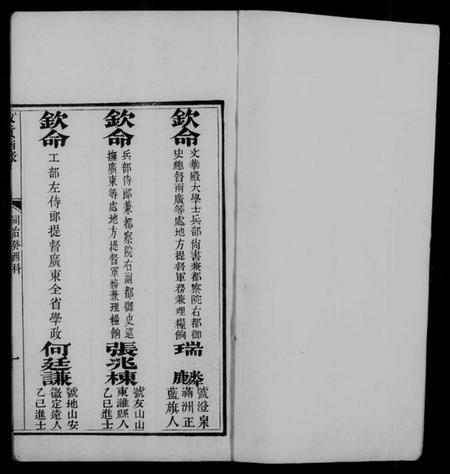 欽命
文華殿大學士兵部尚書兼都察院右都御
史總督兩廣等處地方提督軍務兼理糧餉
瑞麟
號澄泉
滿洲正
藍旗人
欽命
兵部侍郎兼都察院右副都御史巡
撫廣東等處地方提督軍務兼理糧餉
張兆棟
號友山山
東濰縣人
乙巳進士
欽命
工部左侍郎提督廣東全省學政
何廷謙
號地山安
徽定遠人
乙巳進士
同治癸酉科
一